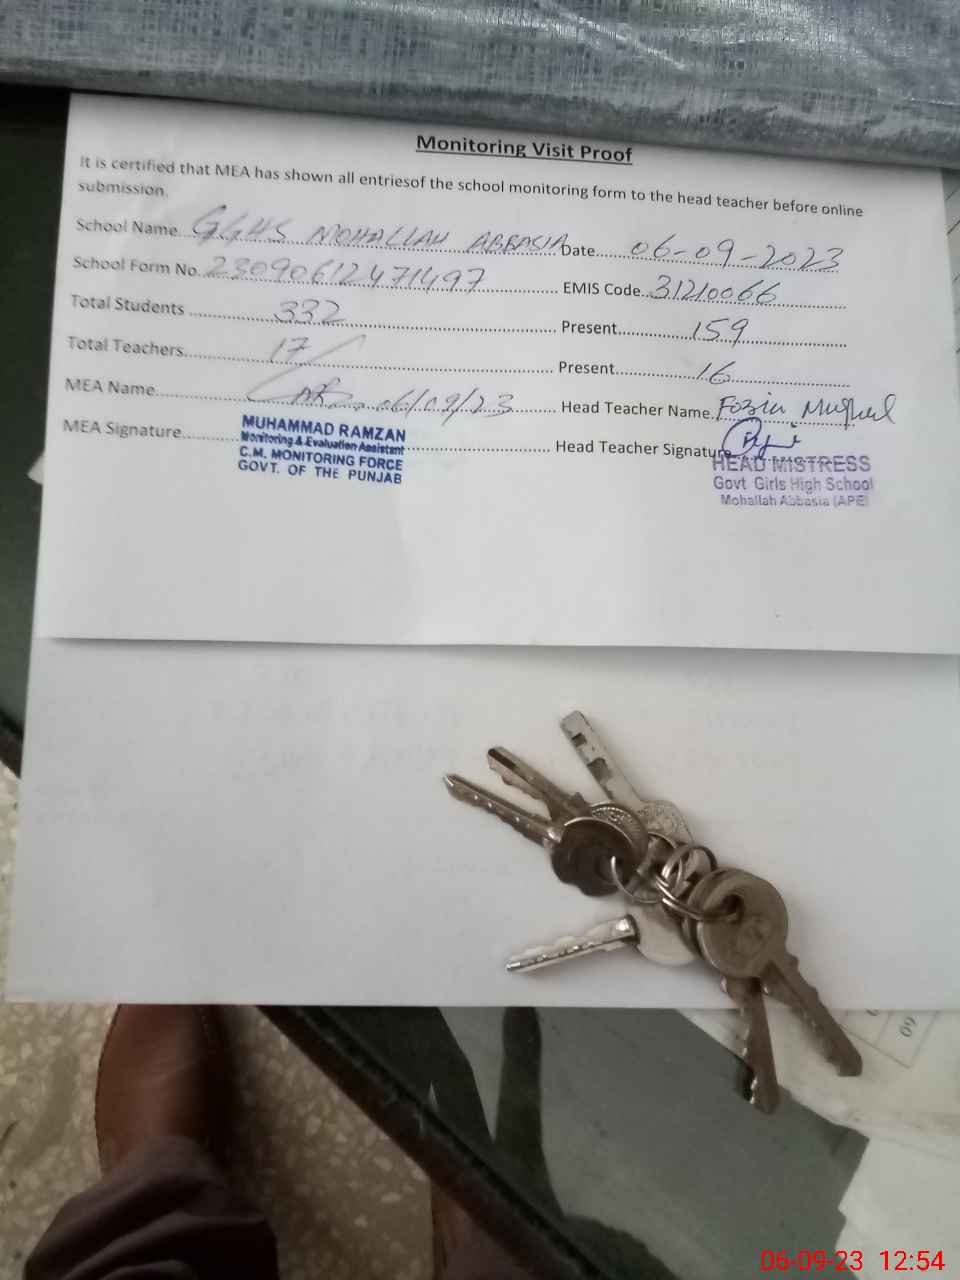 Monitoring Visit Proof
It is certified that MEA has shown all entriesof the school monitoring form to the head teacher before online
submission.
School Name GGHS MOHALLAH ABBASIA Date 06-09-2023
School Form No. 23090612471497 EMIS Code 31210066
Total Students 332 Present 159
Total Teachers 17 Present 16
MEA Name 06/09/23 Head Teacher Name. Fozia
MEA Signature Head Teacher Signature
MUHAMMAD RAMZAN
Monitoring & Evaluation Assistant
C.M. MONITORING FORCE
GOVT. OF THE PUNJAB
HEAD MISTRESS
Govt Girls High School
Mohallah Abbasia (APE)
09
06-09-23 12:54